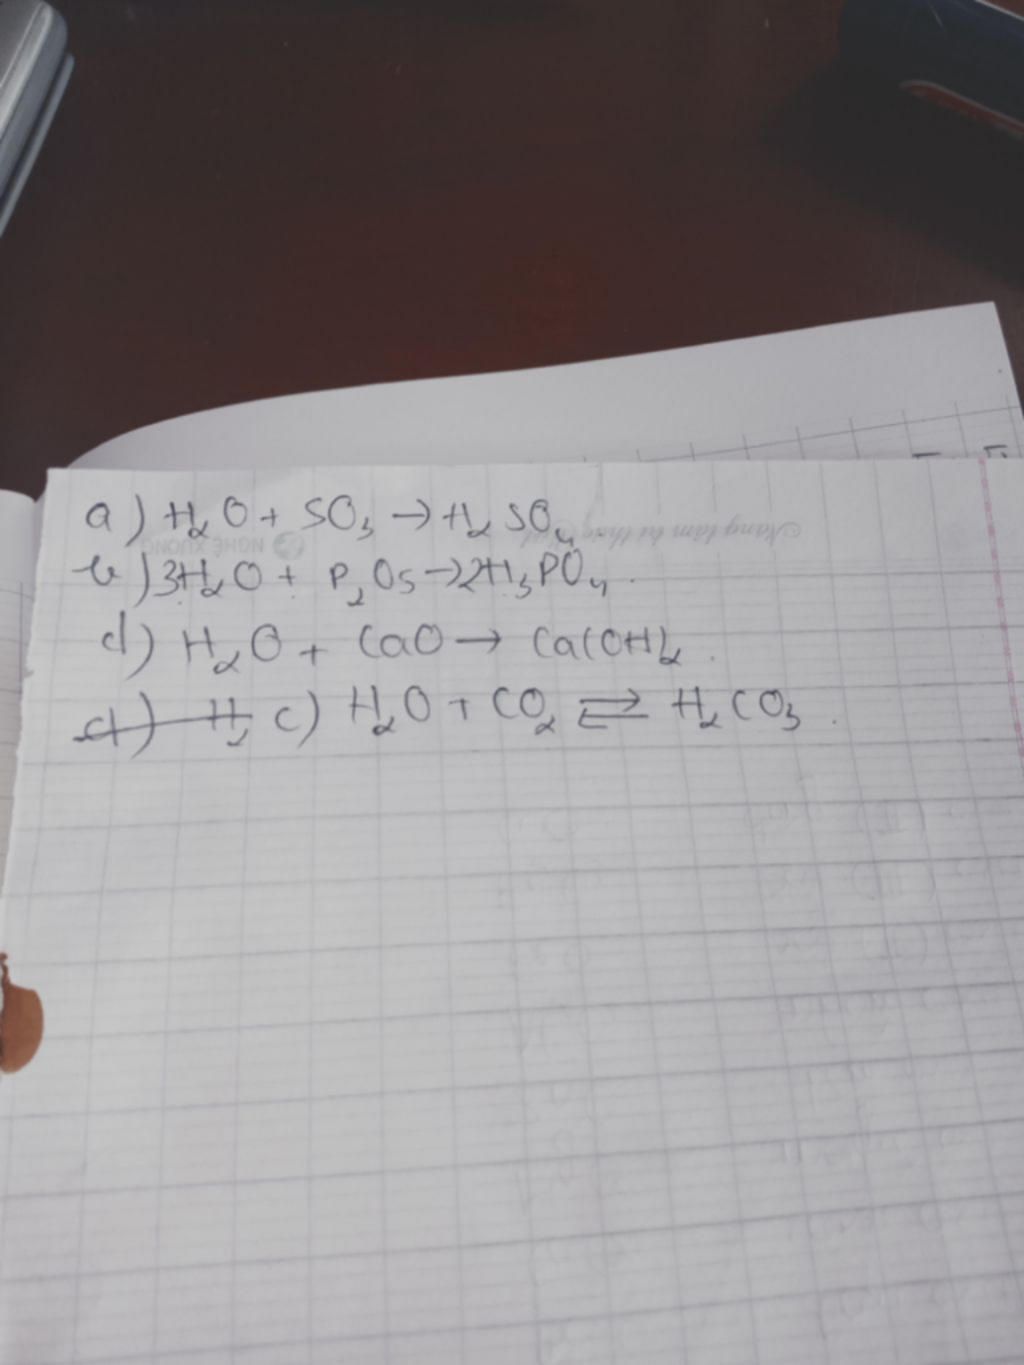 a) H₂O + SO₃ → H₂SO₄
b) 3H₂O + P₂O₅ → 2H₃PO₄.
d) H₂O + CaO → Ca(OH)₂.
d) H₂ c) H₂O + CO₂ ⇌ H₂CO₃.
NGHÊ XUONG